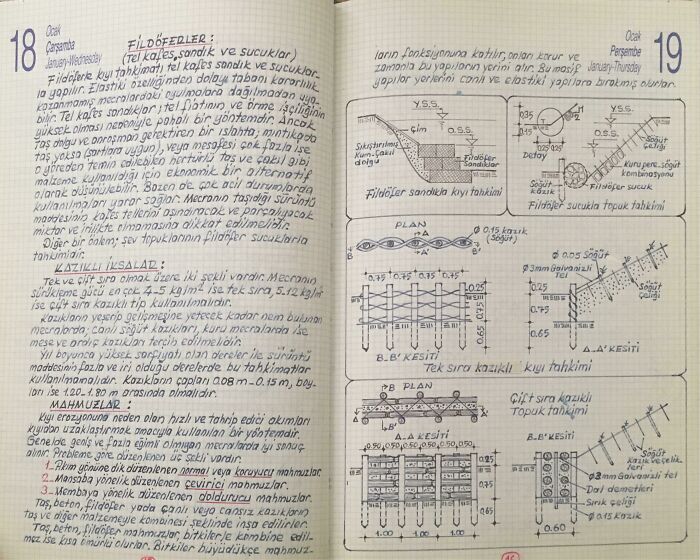 18
Ocak
Çarşamba
January-Wednesday
FİLDÖFERLER :
(Tel kafes, sandık ve sucuklar)
Fildöferle kıyı tahkimatı tel kafes sandık ve sucuklar-
la yapılır. Elastiki özelliğinden dolayı tabanı kararlılık
kazanmamış mecralardaki oyulmalara dağılmadan uya-
bilir. Tel kafes sandıklar; tel fiatının ve örme işçiliğinin
yüksek olması nedeniyle pahalı bir yöntemdir. Ancak
taş dolgu ve anroşman gerektiren bir ıslahta; mıntıkada
taş yoksa (şartlara uygun), veya mesafesi çok fazla ise
o yöreden temin edilebilen hertürlü taş ve çakıl gibi
malzeme kullanıldığı için ekonomik bir alternatif
olarak düşünülebilir. Bazen de çok acil durumlarda
kullanılmaları yarar sağlar. Mecranın taşıdığı sürüntü
maddesinin kafes tellerini aşındıracak ve parçalıyacak
miktar ve irilikte olmamasına dikkat edilmelidir.
Diğer bir önlem; şev topuklarının fildöfer sucuklarla
tahkimidir.
KAZIKLI İKSALAR :
Tek ve çift sıra olmak üzere iki şekli vardır. Mecranın
sürükleme gücü en çok 4-5 kg/m² ise tek sıra, 5-12 kg/m²
ise çift sıra kazıklı tip kullanılmalıdır.
Kazıkların yeşerip gelişmesine yetecek kadar nem bulunan
mecralarda; canlı söğüt kazıkları, kuru mecralarda ise
meşe ve ardıç kazıkları tercih edilmelidir.
Yıl boyunca yüksek sarfiyatı olan dereler ile sürüntü
maddesinin fazla ve iri olduğu derelerde bu tahkimatlar
kullanılmamalıdır. Kazıkların çapları 0.08 m-0.15 m, boy-
ları ise 1.20-1.80 m arasında olmalıdır.
MAHMUZLAR :
Kıyı erozyonuna neden olan hızlı ve tahrip edici akımları
kıyıdan uzaklaştırmak amacıyla kullanılan bir yöntemdir.
Genelde geniş ve fazla eğimli olmıyan mecralarda iyi sonuç
alınır. Probleme göre düzenlenen üç şekli vardır.
1_Akım yönüne dik düzenlenen normal veya koruyucu mahmuzlar.
2_Mansaba yönelik düzenlenen çevirici mahmuzlar.
3_Membaya yönelik düzenlenen doldurucu mahmuzlar.
Taş, beton, fildöfer yada canlı veya cansız kazıkların
taş ve diğer malzemeyle kombinesi şeklinde inşa edilirler.
Taş, beton, fildöfer mahmuzlar, bitkilerle kombine edil-
mez ise kısa ömürlü olurlar. Bitkiler büyüdükçe mahmuz-
19
Ocak
Perşembe
January-Thursday
ların fonksiyonuna katılır, onları korur ve
zamanla bu yapıların yerini alır. Bu masif
yapılar yerlerini canlı ve elastiki yapılara bırakmış olurlar.
Y.S.S.
O.S.S.
Çim
Sıkıştırılmış
Kum-Çakıl
dolgu
Fildöfer
Sandıklar
Fildöfer sandıkla kıyı tahkimi
H/2
0.35
0.15
0.25 0.25
Detay
Y.S.S.
O.S.S.
Söğüt
çeliği
Kuru pere_söğüt
kombinasyonu
Söğüt
Kazık
Fildöfer sucuk
Fildöfer sucukla topuk tahkimi
PLAN
A
B B'
A'
Ø 0.15 kazık
(Söğüt)
0.75 0.75 0.75 0.75
0.25
0.75
0.65
B_B' KESİTİ
Ø 0.05 Söğüt
Ø3mm Galvanizli
Tel
Söğüt
Çeliği
0.25
0.75
0.65
A_A' KESİTİ
Tek sıra kazıklı kıyı tahkimi
B PLAN
A A
B
Çift sıra kazıklı
Topuk tahkimi
A_A KESİTİ
0.50 0.50 0.50 0.50 0.50 0.50
0.25
0.65
1.00 1.00 1.00
B_B' KESİTİ
Söğüt
Kazık ve çelik-
leri
Ø3mm Galvanizli Tel
Dal demetleri
Sırık çeliği
Ø 0.15 Kazık
0.60